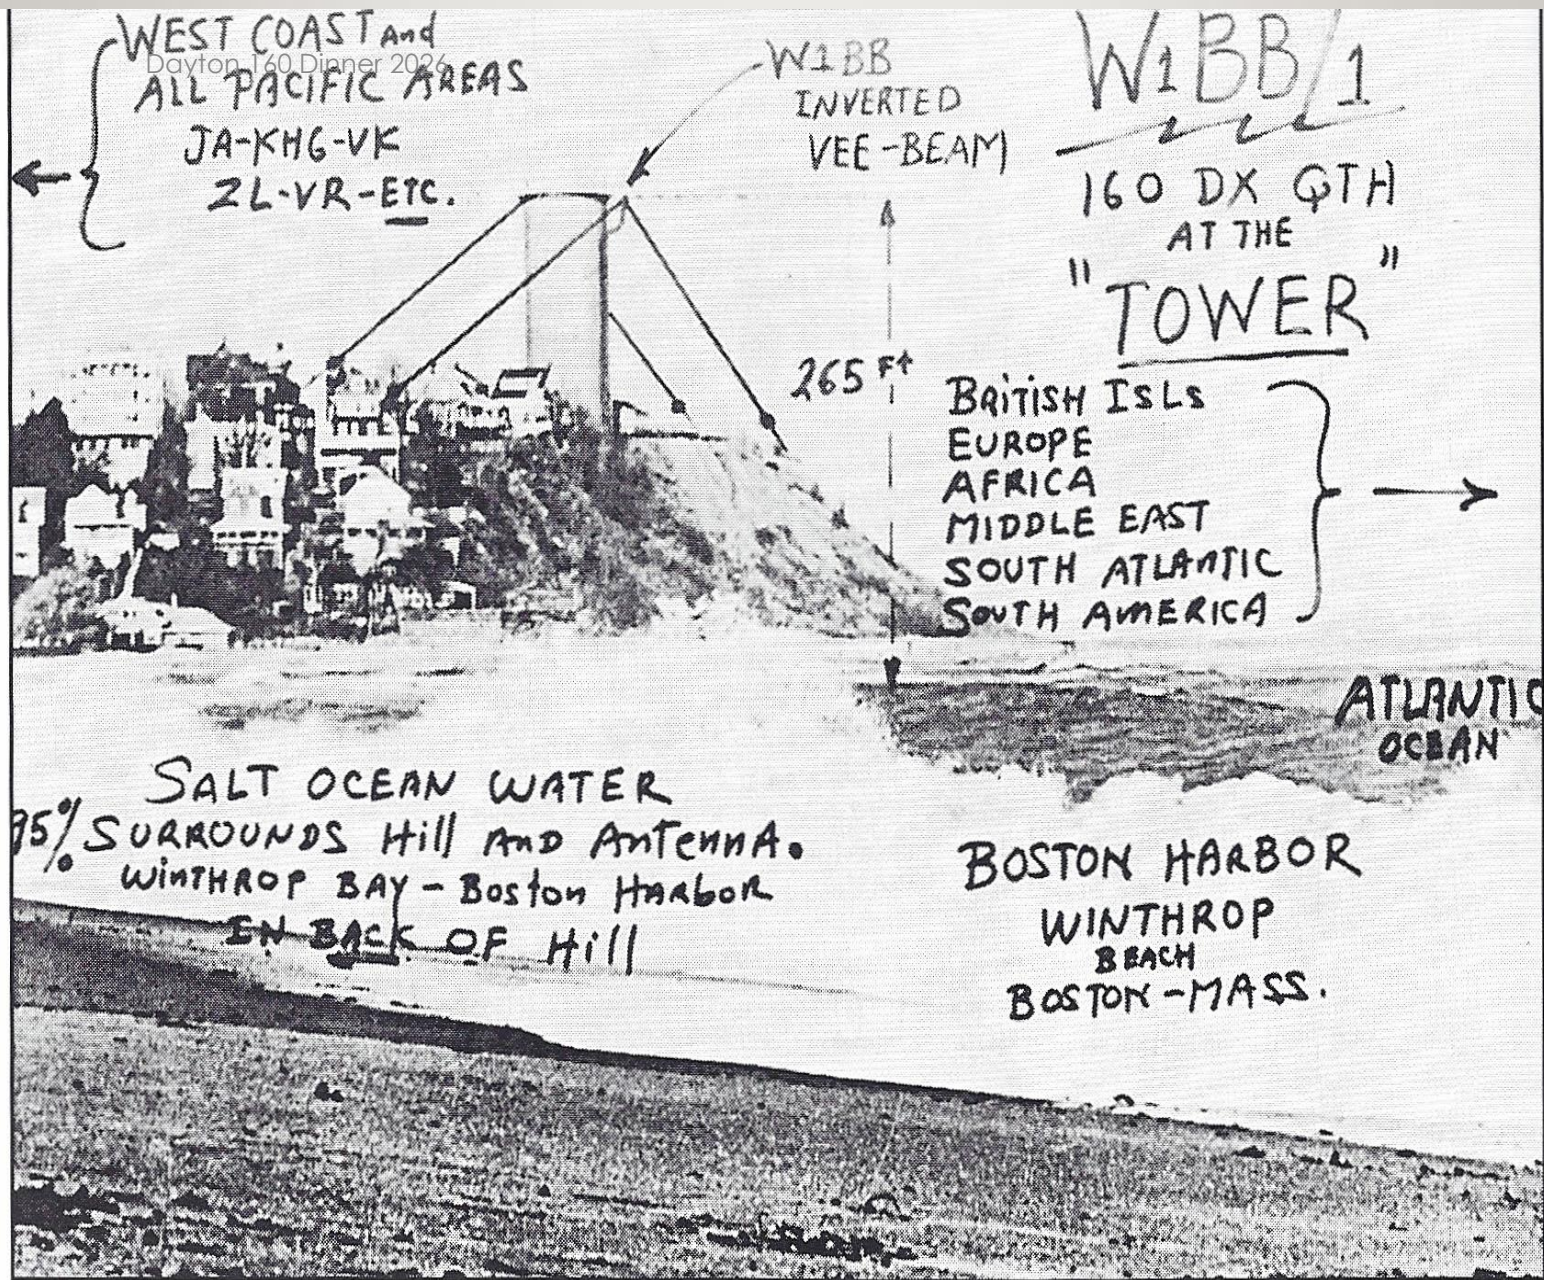 WEST COAST and
Dayton 160 Dinner 2026
ALL PACIFIC AREAS
JA-KH6-VK
ZL-VR-ETC.
W1BB
INVERTED
VEE-BEAM
W1BB/1
160 DX QTH
AT THE
"TOWER"
265 Ft
BRITISH ISLS
EUROPE
AFRICA
MIDDLE EAST
SOUTH ATLANTIC
SOUTH AMERICA
ATLANTIC
OCEAN
SALT OCEAN WATER
95% SURROUNDS Hill AND ANTENNA.
WINTHROP BAY - Boston HARBOR
IN BACK OF Hill
BOSTON HARBOR
WINTHROP
BEACH
BOSTON-MASS.